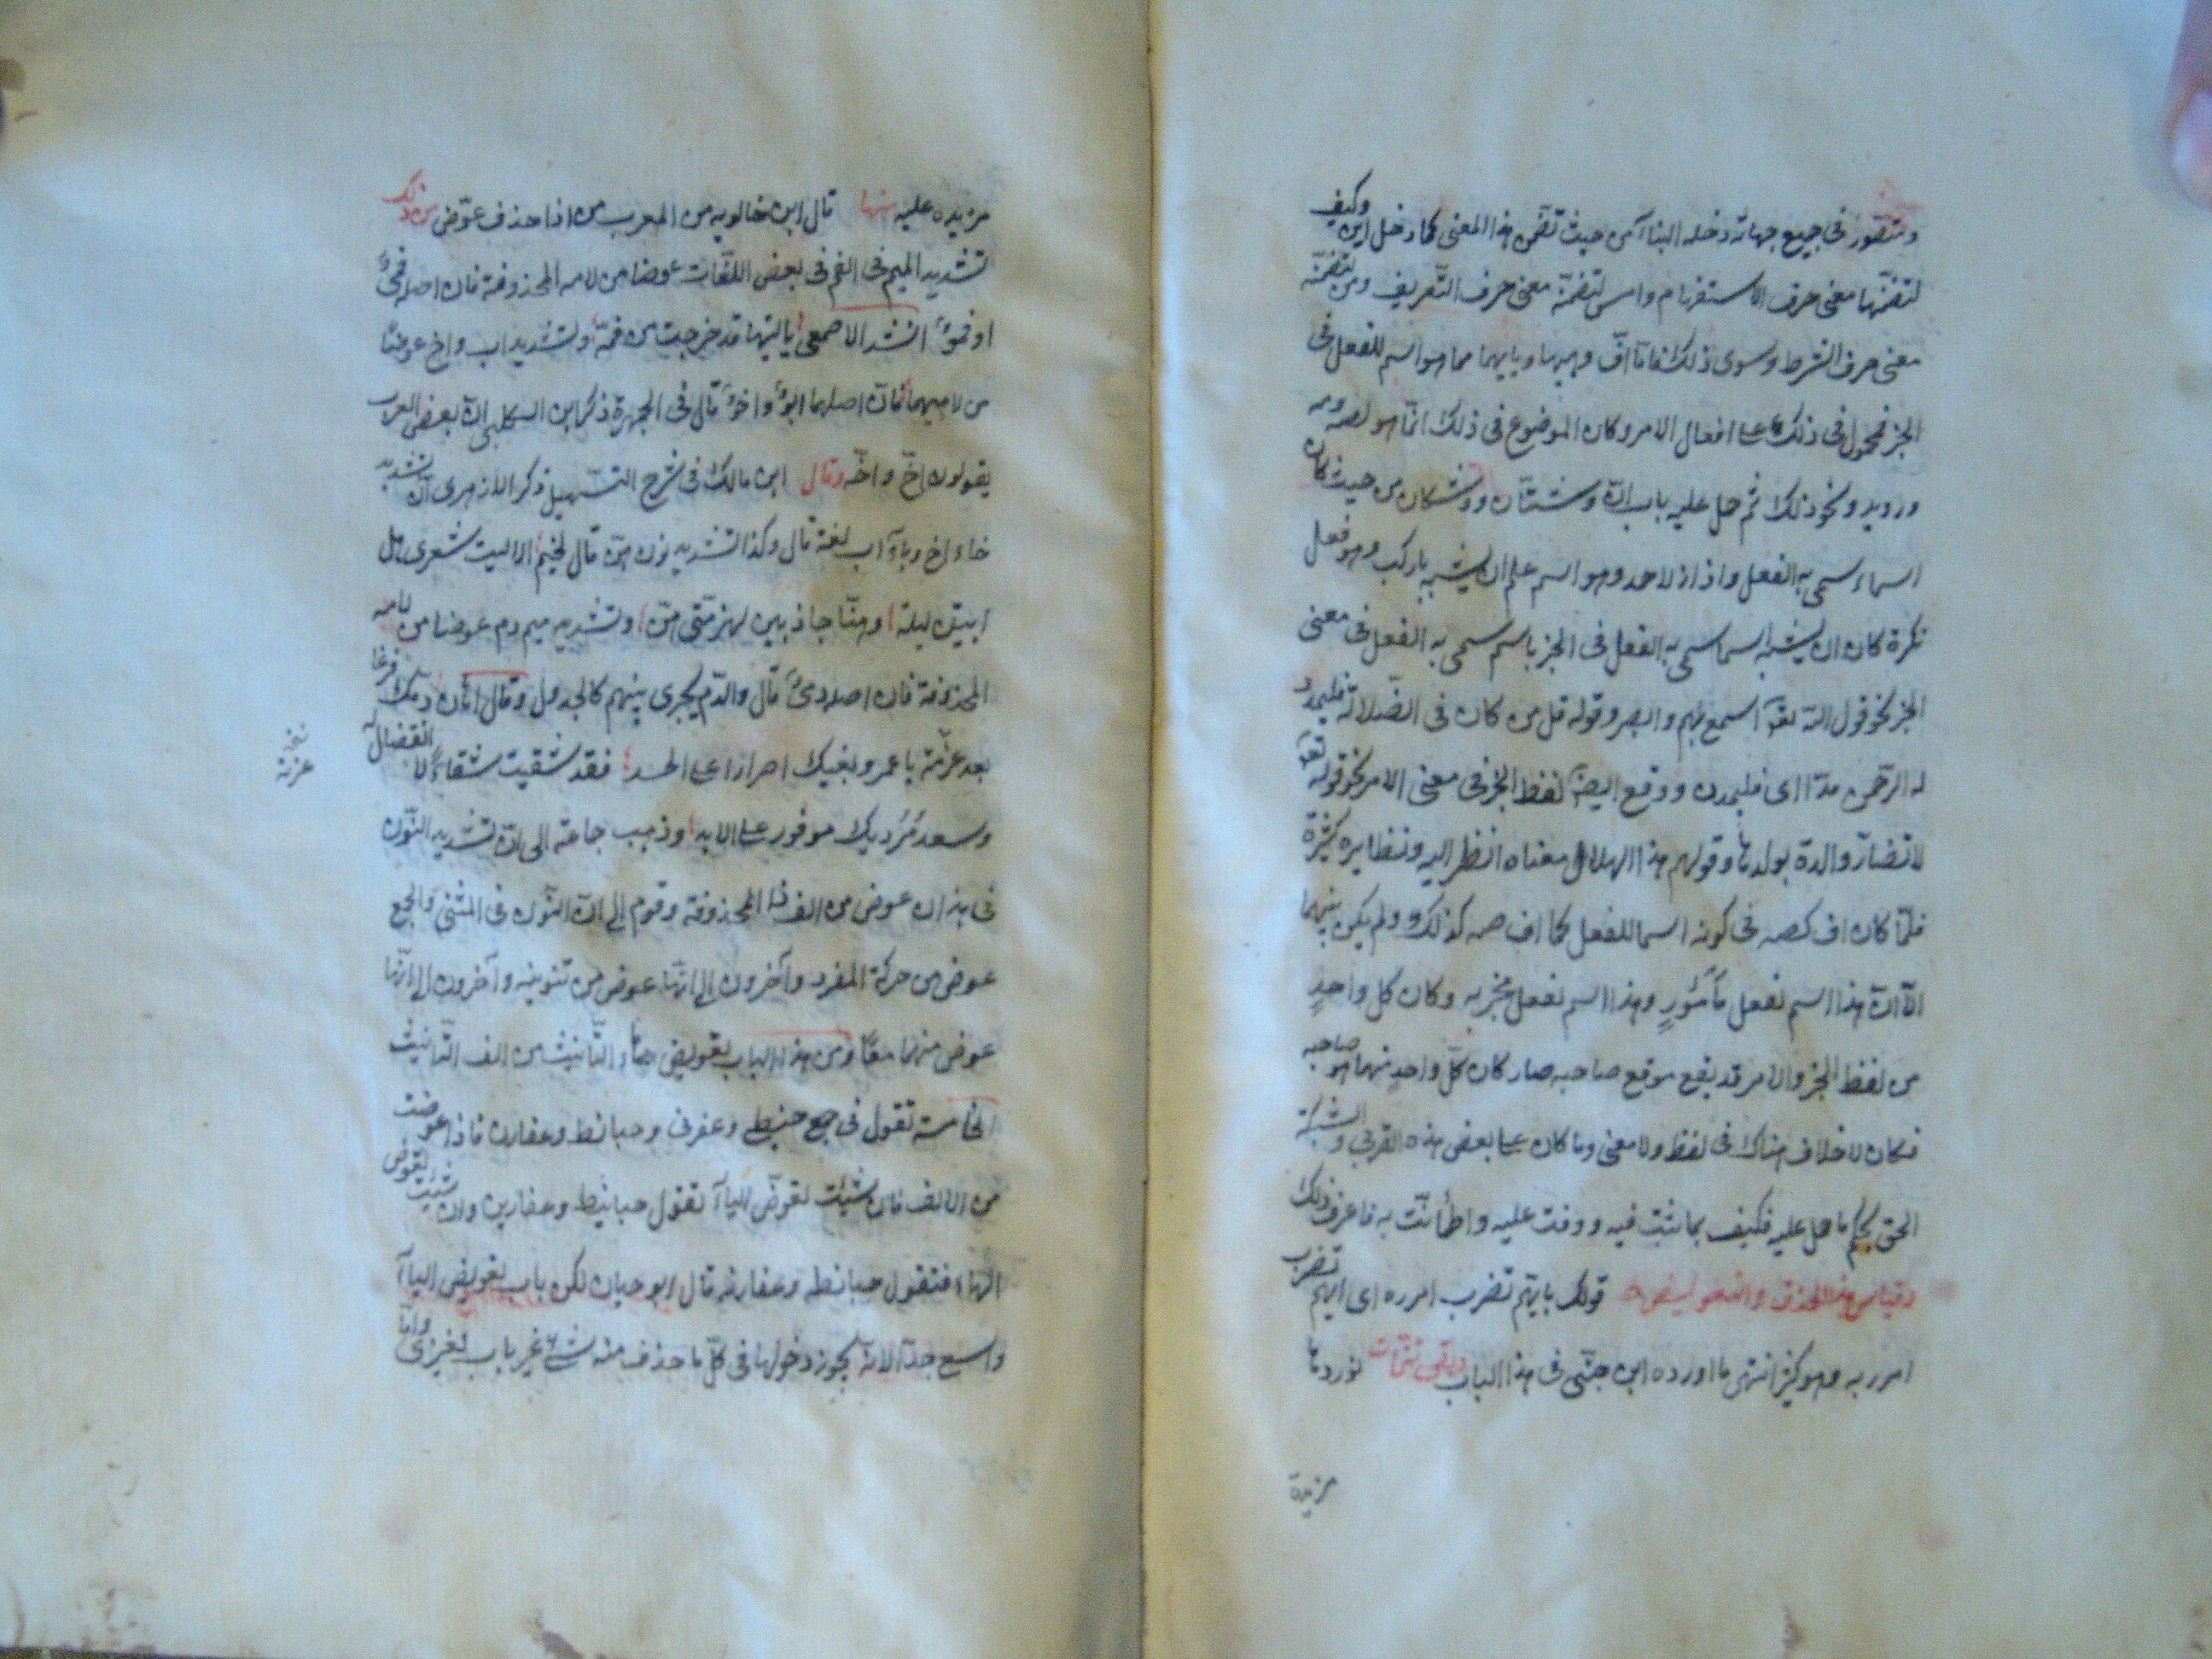 ومتصور في جميع جهاته دخله البناء من حيث تضمن هذا المعنى كما دخل اين وكيف
لتضمنها معنى حرف الاستفهام وامس لتضمنه معنى حرف التعريف ومن لتضمنه
معنى حرف الشرط وسوى ذلك فاما اف وهيهات وبابهما مما هو اسم للفعل في
الخبر فمحمول في ذلك على افعال الامر وكان الموضوع في ذلك انما هو لصه ومه
ورويد ونحو ذلك ثم حمل عليه باب اف وشتان ووشكان من حيث كان
اسماء سمي به الفعل واذا جاز لاحمد وهو اسم علم ان يشبه باركب وهو فعل
نكرة كان ان يشبه اسما سمي به الفعل في الخبر باسم سمي به الفعل في معنى
الخبر نحو قول الله تعالى اسمع بهم وابصر وقوله قل من كان في الضلالة فليمدد
له الرحمن مدا اى فليمدن ووقع ايضا لفظ الخبر في معنى الامر نحو قوله تعالى
لا تضار والدة بولدها وقولهم هذا الهلال معناه انظر اليه ونظايره كثيرة
فلما كان اف كصه في كونه اسما للفعل كما ان صه كذلك ولم يكن بينهما
الا ان هذا اسم لفعل مأمور به وهذا اسم لفعل مخبر به وكان كل واحد
من لفظ الخبر والامر قد يقع موقع صاحبه صار كان كل واحد منهما هو صاحبه
فكان لا خلاف هناك في لفظ ولا معنى وما كان على بعض هذه القربى والشبكة
الحق بحكم ما حمل عليه فكيف بما ثبتت فيه ووفت عليه واطمأنت به فاعرف ذلك
وقياس هذا الحذف والتعويض قولك بايهم تضرب امرر اى ايهم تضرب
امرر به وهو كثير انتهى ما اورده ابن جني في هذا الباب وبقى تتمات نوردها
مزيدة
مزيدة عليه منها قال ابن خالويه من المعرب من اذا حذف عوض من ذلك
تشديد الميم في الفم في بعض اللغات عوضا من لامه المحذوفة فان اصله فمي
او فمو انشد الاصمعي يا ليتها قد خرجت من فمه وتشديد اب واخ عوضا
من لاميهما فان اصلهما ابو واخو قال في الجمهرة ذكر ابن الكلبي ان بعض العرب
يقولون اخ واخة وقال ابن مالك في شرح التسهيل ذكر الازهرى ان تشديد
خاء اخ وباء اب لغة قال وكذا تشديد نون هن قال سحيم الا ليت شعرى هل
ابيتن ليلة وهنا جاذ بين لهزمتي هن وتشديد ميم دم عوضا من لامه
المحذوفة فان اصله دمي قال والدم يجرى بينهم كالجدول وقال اهان دمك فرغا
بعد عزته يا عمرو بغيك اصرارا على الحسد فقد شقيت شقاء لا انقضاء له
نسخة
عزته
وسعد مرديك موفور على الابد وذهب جماعة الى ان تشديد النون
في هذان عوض من الف ذا المحذوفة وقوم الى ان النون في المثنى والجمع
عوض من حركة المفرد وآخرون الى انها عوض من تنوينه وآخرون الى انها
عوض منهما معا ومن هذا الباب تعويض هاء التأنيث من الف التأنيث
الخامسة تقول في جمع حبنطى وعفرنى وحبانط وعفارن فاذا عوضت
من الالف فان شئت تعوض الياء تقول حبانيط وعفارين وان شئت تعوض
الهاء فتقول حبانطه وعفارنه قال ابو حيان لكن باب تعويض الياء
واسع جدا لانه يجوز دخولها في كل ما حذف منه شيء غير باب لغيزى واما